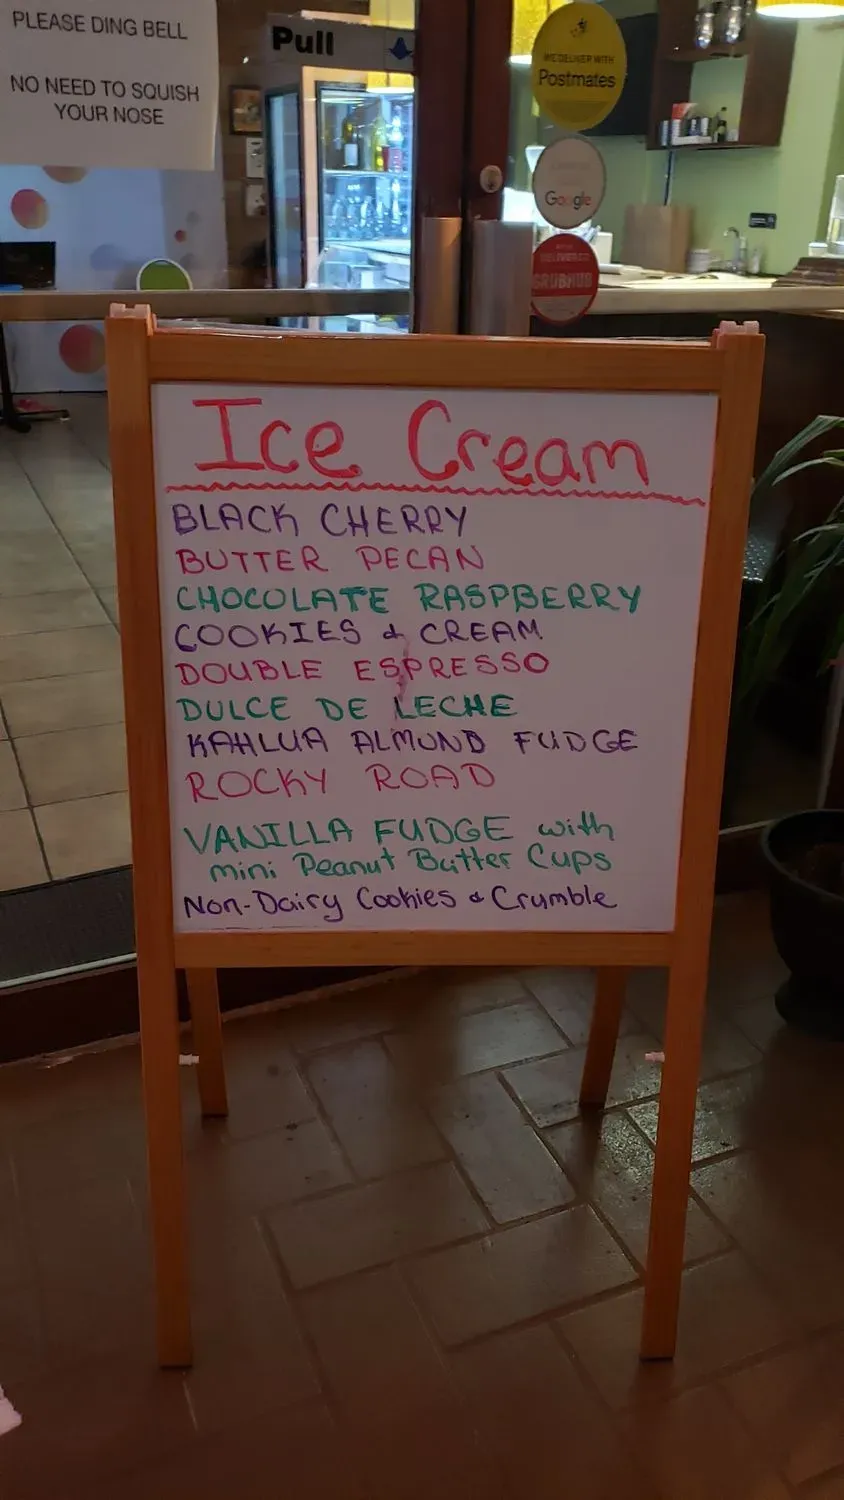 PLEASE DING BELL
NO NEED TO SQUISH
YOUR NOSE
Pull
WE DELIVER WITH
Postmates
Google
DELIVERED
GRUBHUB
Ice Cream
BLACK CHERRY
BUTTER PECAN
CHOCOLATE RASPBERRY
COOKIES & CREAM
DOUBLE ESPRESSO
DULCE DE LECHE
KAHLUA ALMOND FUDGE
ROCKY ROAD
VANILLA FUDGE with
mini Peanut Butter Cups
Non-Dairy Cookies & Crumble